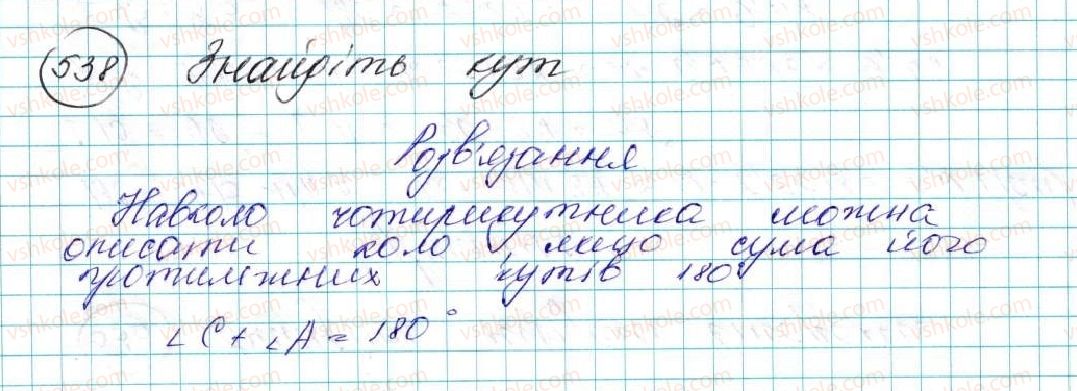 538 Знайдіть кут
Розв'язання
Навколо чотирикутника можна
описати коло якщо сума його
протилежних кутів 180°
∠C + ∠A = 180°